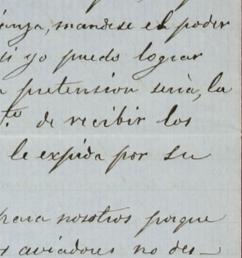 ianza, mandese el poder
si yo puedo lograr
pretension seria, la
de recibir los
le expida por su
para nosotros porque
aviadores no des-